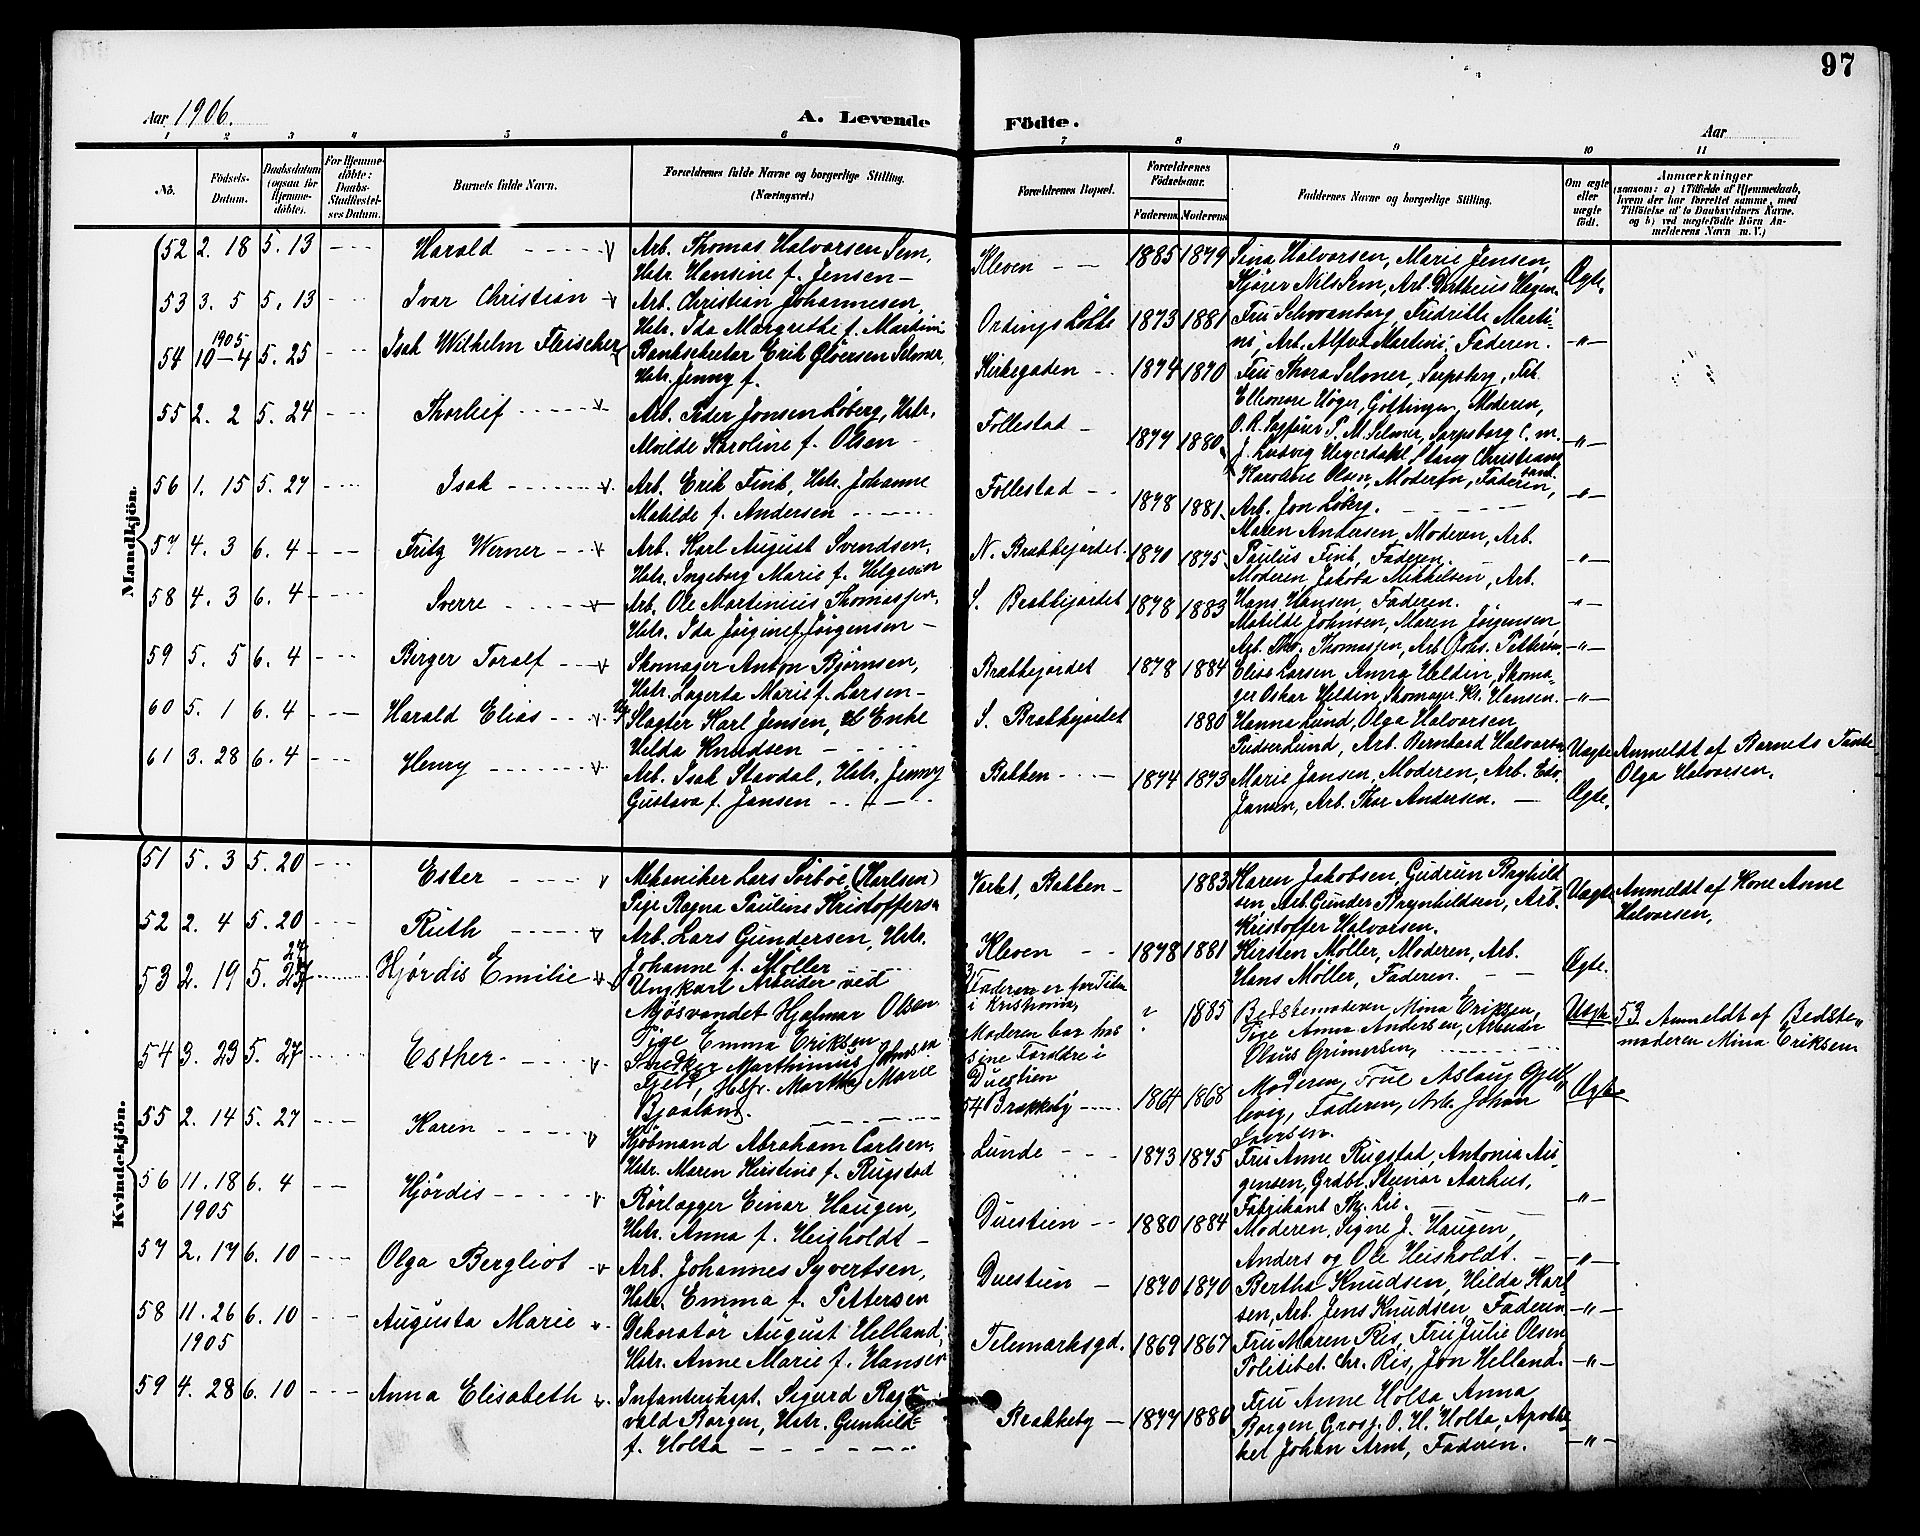 97
Aar 1906.
A. Levende Födte.
Aar
1 2 3 4 5 6 7 8 9 10 11
No.
Födsels-Datum.
Daabsdatum (ogsaa for Hjemmedöbte).
For Hjemmedöbte: Daabs-Stadfæstelses Datum.
Barnets fulde Navn.
Forældrenes fulde Navne og borgerlige Stilling. (Næringsvei.)
Forældrenes Bopæl.
Forældrenes Födselsaar.
Faderens Moderens
Faddernes Navne og borgerlige Stilling.
Om ægte eller uægte födt.
Anmærkninger
(saasom: a) i Tilfælde af Hjemmedaab, hvem der har forrettet samme, med Tilföielse af to Daabsvidners Navne. b) ved uægtefödte Börn Anmelderens Navn m. V.)
Mandkjön.
52 2. 18 5. 13 Harald Arb. Thomas Halvorsen Sem, Hstr. Hansine f. Jensen Kleven 1885 1879 Sina Halvorsen, Marie Jensen, Kjører Nils Sem, Arb. Ægte.
53 3. 5 5. 13 Ivar Christian Arb. Christian Johannesen, Hstr. Ida Margrethe f. Martini Ordings Løkke 1873 1881 Fru Schwanborg, Fridrikke Martini, Arb. Alfred Martini, Faderen. -"-
54 1905 10-4 5. 25 Isak Wilhelm Fleischer Banksekretær Erik Gløersen Selmer, Hstr. Jenny f. Kirkegaden 1874 1870 Fru Thora Selmer, Sarpsborg, Frk. Elleonore Høger, Göttingen, Moderen, O. R. Sagfører P. M. Selmer, Sarpsborg C. m. J. Ludvig Hegerdahl Stang Christianssand -"-
55 2. 2 5. 24 Thorleif Arb. Peder Jonsen Løberg, Hstr. Alvilde Karoline f. Olsen Follestad 1877 1880 Karoline Olsen, Moderen, Faderen, Arb. Jon Løberg. -"-
56 1. 15 5. 27 Isak Arb. Erik Fink, Hstr. Johanne Matilde f. Andersen Follestad 1878 1881 Maren Andersen, Moderen, Arb. Paulus Fink, Faderen. -"-
57 4. 3 6. 4 Fritz Werner Arb. Karl August Svendsen, Hstr. Ingeborg Marie f. Helgesen N. Brækkejordet 1870 1875 Moderen, Jakoba Mikkelsen, Arb. Hans Hansen, Faderen. -"-
58 4. 3 6. 4 Sverre Arb. Ole Martinius Thomassen, Hstr. Ida Jørgine f. Jørgensen S. Brækkejordet 1878 1883 Matilde Johnsen, Maren Jørgensen, Arb. Tho. Thomassen, Arb. Johs. Pettersen -"-
59 5. 5 6. 4 Birger Toralf Skomager Anton Bjørnsen, Hstr. Lagerta Marie f. Larsen Brækkejordet 1878 1884 Elise Larsen, Anna Heldin, Skomager Oskar Heldin, Skomager Kl. Hansen. -"-
60 5. 1 6. 4 Harald Elias Slagter Karl Jensen, Enke Hilda Knudsen S. Brækkejordet 1880 Hanna Lund, Olga Halvorsen, Pudser Lund, Arb. Bernhard Halvorsen Uægte Anmeldt af Barnets Tante Olga Halvorsen.
61 3. 28 6. 4 Henry Arb. Isak Stavdal, Hstr. Jenny Gustava f. Jansen Bakken 1874 1873 Marie Jansen, Moderen, Arb. Edv. Jansen, Arb. Thor Andersen. Ægte.
Kvindekjön.
51 5. 3 5. 20 Ester Mekaniker Lars Sørbøe (Karlsen) Pige Ragna Pauline Kristoffersen Verket, Bakken 1883 Karen Jakobsen, Gudrun Brynhildsen Arb. Gunder Brynhildsen, Arb. Kristoffer Halvorsen. Uægte Anmeldt af Kone Anne Halvorsen,
52 2. 4 5. 20 Ruth Arb. Lars Gundersen, Hstr. Johanne f. Møller Kleven 1878 1881 Kirsten Møller, Moderen, Arb. Hans Møller, Faderen. Ægte.
53 2. 19 5. 27 Hjørdis Emilie Ungkarl Arbeider ved Mjøsvandet Hjalmar Olsen Pige Emma Eriksen Faderen er for Tiden i Kristiania, Moderen bor hos sine Forældre i Duestien ? 1885 Bedstemoderen Mina Eriksen, Pige Anna Andersen, Arbeider Olaus Grimersen, Uægte 53 Anmeldt af Bedstemoderen Mina Eriksen
54 3. 23 5. 27 Esther Snedker Marthinius Johnsen Fjeld, Hsfr. Marthe Marie Bjaaland. 54 Brækkeby 1864 1868 Moderen, Frue Aslaug Gjellevig, Faderen, Arb. Johan Iversen. Ægte
55 2. 14 5. 27 Karen Kjøbmand Abraham Carlsen, Hstr. Maren Kirstine f. Rugstad Lunde 1873 1875 Fru Anne Rugstad, Antonia Aigensen, Grdbr. Steinar Aarhus, Fabrikant Th. Lie.
56 11. 18 1905 6. 4 Hjørdis Rørlægger Einar Haugen, Hstr. Anna f. Heisholdt Duestien 1880 1884 Moderen, Signe J. Haugen, Anders og Ole Heisholdt. -"-
57 2. 17 6. 10 Olga Bergliot Arb. Johannes Syvertsen, Hstr. Emma f. Pettersen Duestien 1870 1870 Bertha Knudsen, Hilda Karlsen, Arb. Jens Knudsen, Faderen -"-
58 11. 26 1905 6. 10 Augusta Marie Dekoratør August Helland, Hstr. Anne Marie f. Hansen Telemarksgd. 1869 1867 Fru Maren Ris, Fru Julie Olsen Politibet. Chr. Ris, Jon Helland. -"-
59 4. 28 6. 10 Anna Elisabeth Infanterikpt. Sigurd Ragnvald Borgen, Hstr. Gunhild f. Holta Brækkeby 1877 1880 Fru Anne Holta Anna Borgen, Grosj. O. H. Holta, Apotheker Johan Arnt, Faderen. -"-